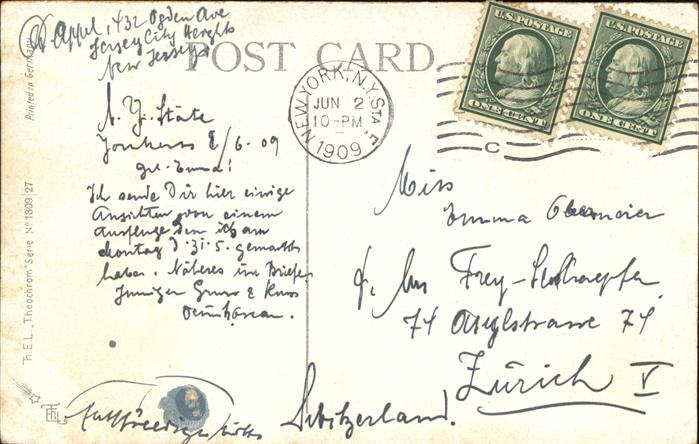 Appel, 432 Ogden Ave
Jersey City Heights
New Jersey
POST CARD
Printed in Germany
U.S. POSTAGE
ONE CENT
U.S. POSTAGE
ONE CENT
NEW YORK, N.Y. STA. F
JUN 2
10-PM
1909
C
N. Y. State
Yonkers 2/6-09
gel. Emma!
Ich sende Dir hier einige
Ansichten von einem
Ausfluge den ich am
Montag d. 31.5. gemacht
habe. Näheres im Brief.
Innigen Gruss & Kuss
Miss
Emma Obermeier
Frey-
74 Asylstrasse 74
Zürich V
Switzerland.
Th.E.L. "Theochrom" Serie No 1809/27